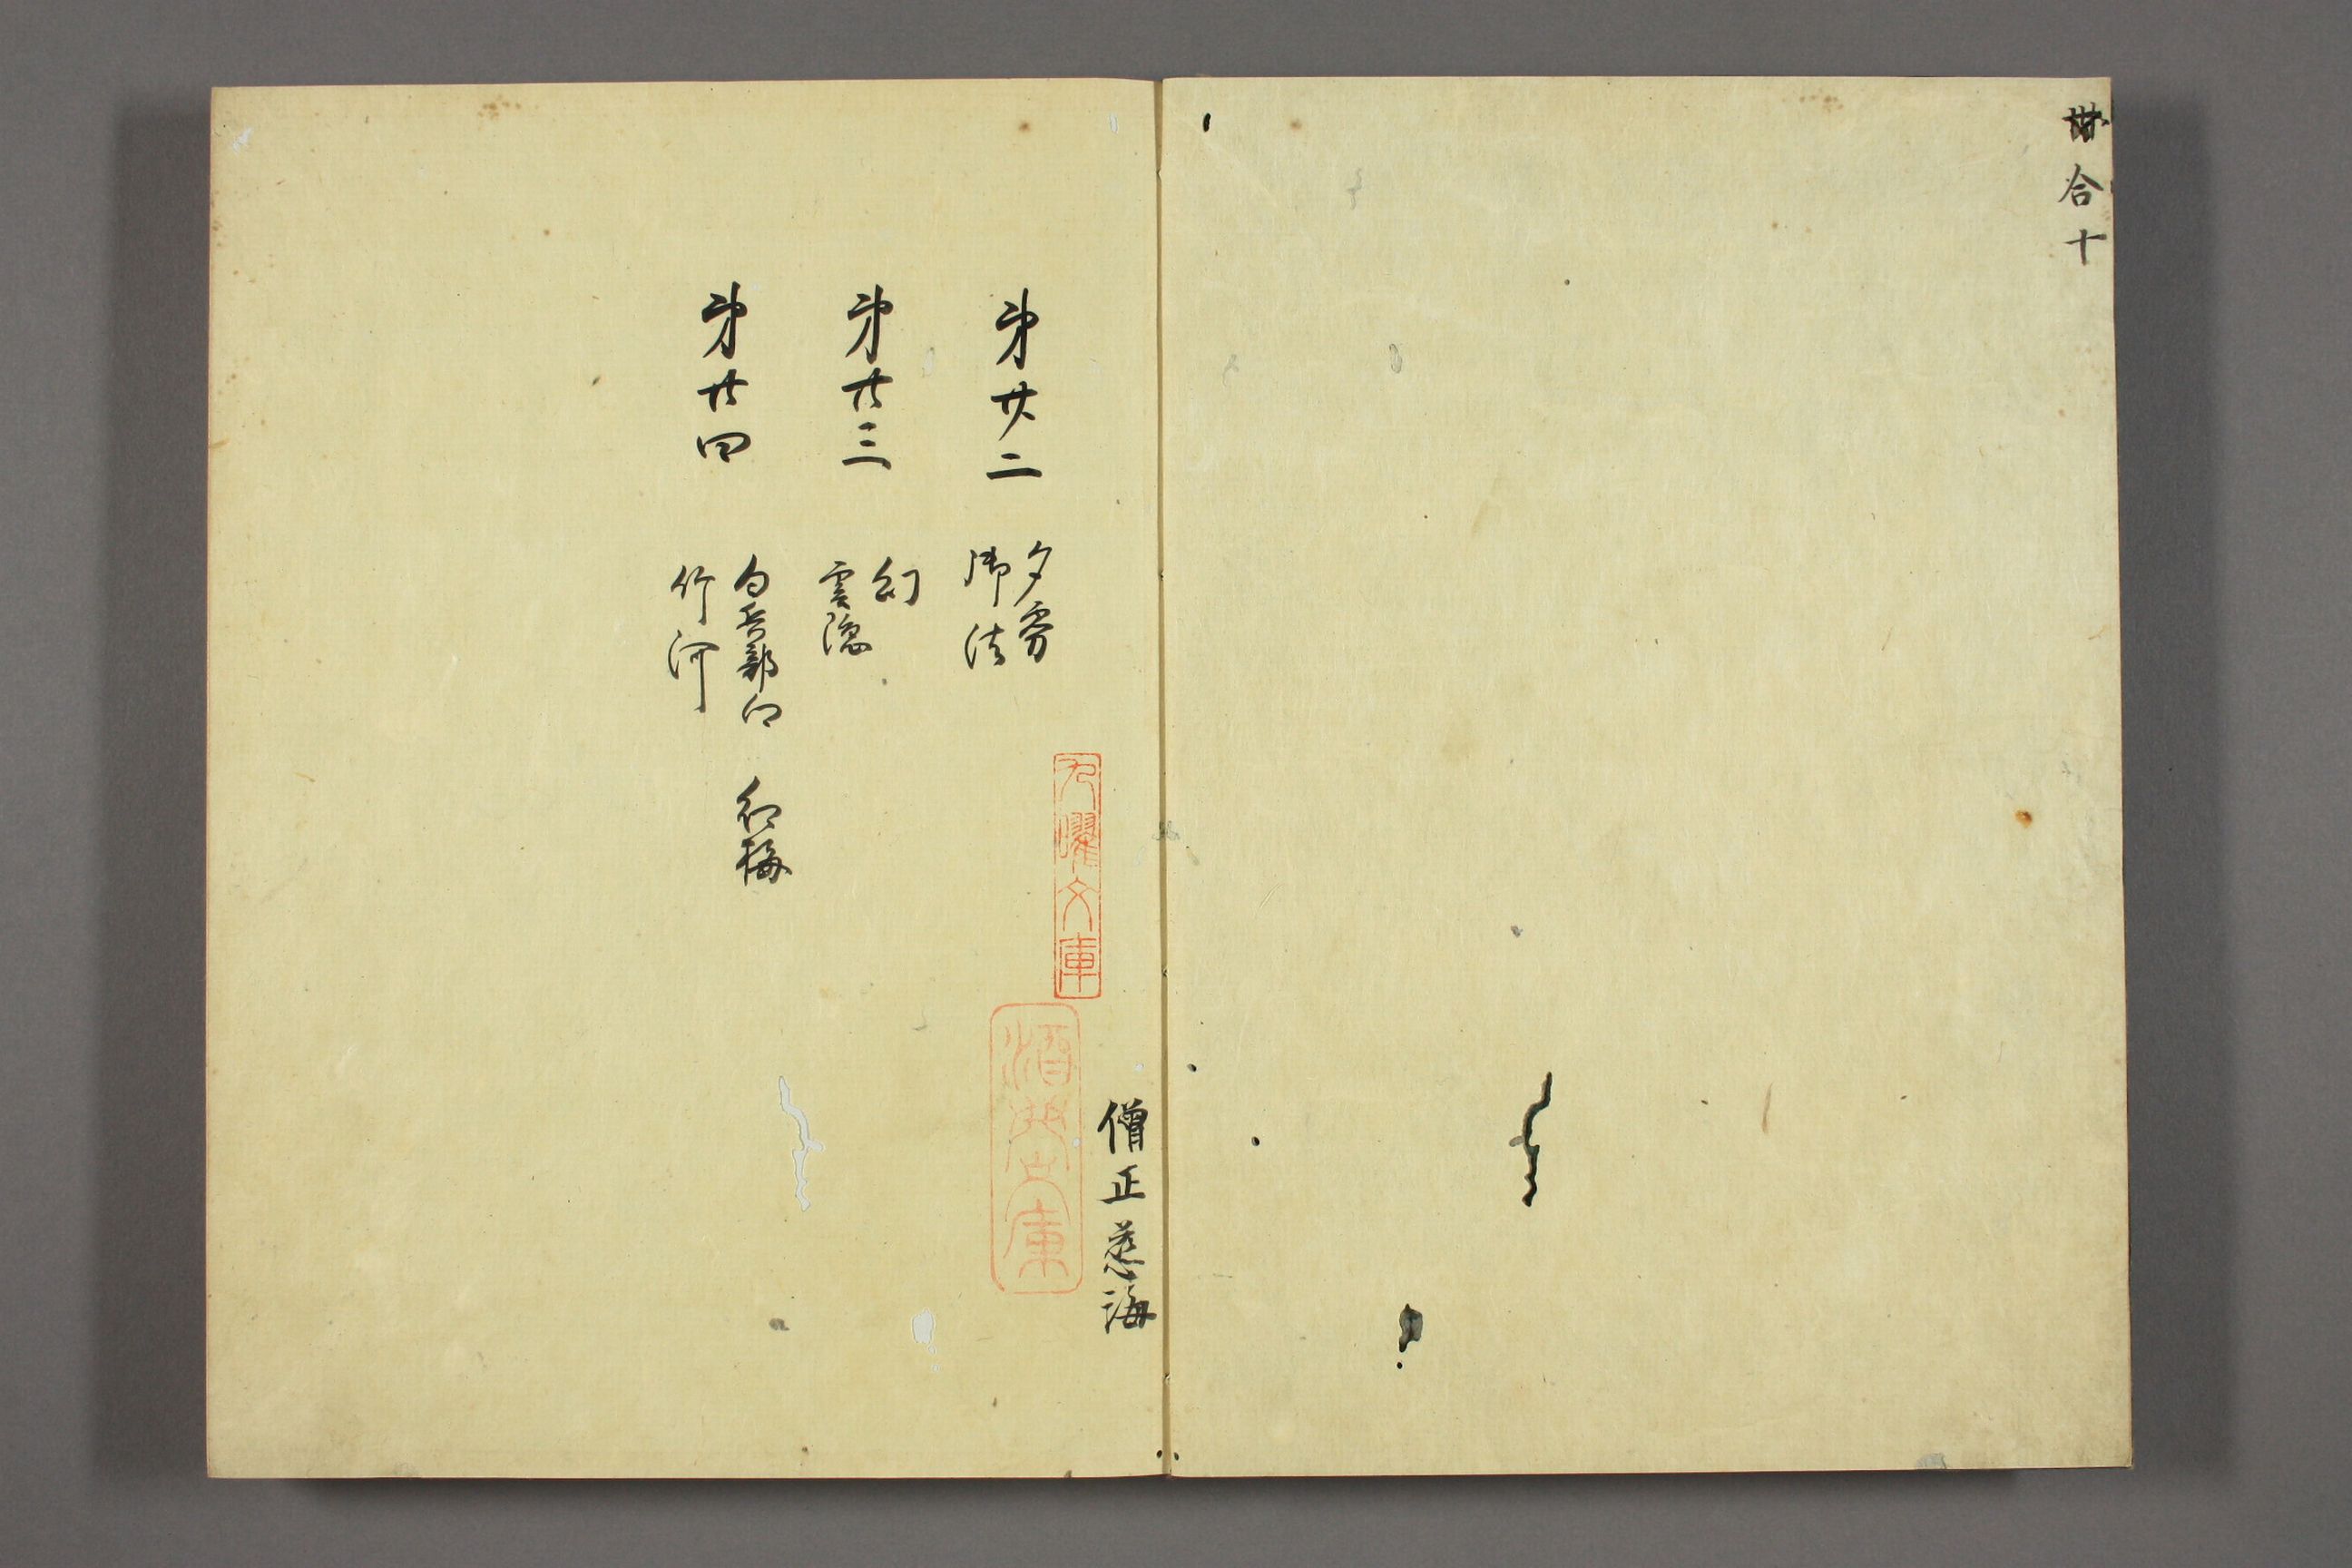 合十
僧正慈海
九曜文庫
第廿二
夕霧
御法
第廿三
幻
雲隠
第廿四
匂兵部卿 紅梅
竹河